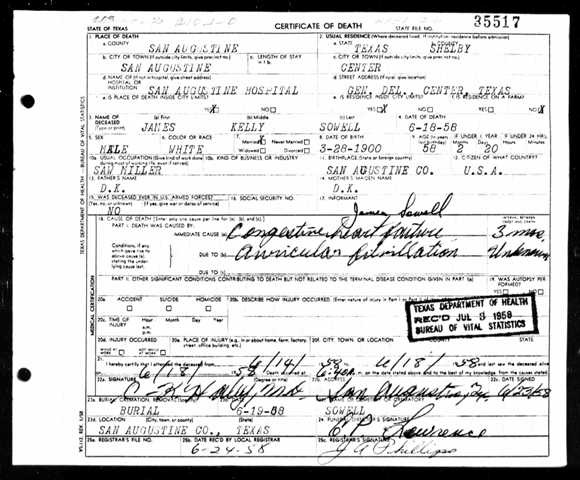 STATE OF TEXAS CERTIFICATE OF DEATH STATE FILE NO. 35517
1. PLACE OF DEATH 2. USUAL RESIDENCE (Where deceased lived. If institution: residence before admission)
a. COUNTY SAN AUGUSTINE a. STATE TEXAS b. COUNTY SHELBY
b. CITY OR TOWN (If outside city limits, give precinct no.) c. LENGTH OF STAY c. CITY OR TOWN (If outside city limits, give precinct no.)
SAN AUGUSTINE CENTER
d. NAME OF (If not in hospital, give street address) HOSPITAL OR INSTITUTION d. STREET ADDRESS (If rural, give location)
SAN AUGUSTINE HOSPITAL GEN. DEL. CENTER, TEXAS
e. IS PLACE OF DEATH INSIDE CITY LIMITS? e. IS RESIDENCE INSIDE CITY LIMITS? f. IS RESIDENCE ON A FARM?
YES X NO YES X NO YES NO X
3. NAME OF DECEASED (Type or print) (a) First (b) Middle (c) Last 4. DATE OF DEATH
JAMES KELLY SOWELL 6-18-58
5. SEX 6. COLOR OR RACE 7. Married Never Married Widowed Divorced 8. DATE OF BIRTH 9. AGE IF UNDER 1 YEAR IF UNDER 24 HRS.
MALE WHITE 3-28-1900 58 2 20
10a. USUAL OCCUPATION (Give kind of work done during most of working life, even if retired) 10b. KIND OF BUSINESS OR INDUSTRY 11. BIRTHPLACE (State or foreign country) 12. CITIZEN OF WHAT COUNTRY?
SAW MILLER SAN AUGUSTINE CO. U.S.A.
13. FATHER'S NAME 14. MOTHER'S MAIDEN NAME
D.K. D.K.
15. WAS DECEASED EVER IN U.S. ARMED FORCES? 16. SOCIAL SECURITY NO. 17. INFORMANT
(Yes, no, or unknown) (If yes, give war or dates of service)
NO James Sowell
18. CAUSE OF DEATH [Enter only one cause per line for (a), (b), and (c).] INTERVAL BETWEEN ONSET AND DEATH
PART I. DEATH WAS CAUSED BY:
IMMEDIATE CAUSE (a) Congestive heart failure 3 mos.
Conditions, if any, which gave rise to above cause (a), stating the underlying cause last.
DUE TO (b) Auricular fibrillation Unknown
DUE TO (c)
PART II. OTHER SIGNIFICANT CONDITIONS CONTRIBUTING TO DEATH BUT NOT RELATED TO THE TERMINAL DISEASE CONDITION GIVEN IN PART I(a) 19. WAS AUTOPSY PERFORMED?
YES NO
20a. ACCIDENT SUICIDE HOMICIDE 20b. DESCRIBE HOW INJURY OCCURRED.
20c. TIME OF INJURY Hour Month Day Year a.m. p.m.
TEXAS DEPARTMENT OF HEALTH
REC'D JUL 3 1958
BUREAU OF VITAL STATISTICS
20d. INJURY OCCURRED 20e. PLACE OF INJURY (e.g., in or about home, farm, factory, street, office building, etc.) 20f. CITY, TOWN, OR LOCATION COUNTY STATE
21. I hereby certify that I attended the deceased from 6/14/ 58 to 6/18/ 58 and last saw the deceased alive
on 6/18/ 58 Death occurred at m. on the date stated above; and to the best of my knowledge, from the causes stated.
22a. SIGNATURE (Degree or title) 22b. ADDRESS 22c. DATE SIGNED
San Augustine, Tex.
23a. BURIAL, CREMATION, REMOVAL 23b. DATE 23c. NAME OF CEMETERY OR CREMATORY
BURIAL 6-19-58 SOWELL
23d. LOCATION (City, town, or county) (State) 24. FUNERAL DIRECTOR'S SIGNATURE
SAN AUGUSTINE CO., TEXAS Lawrence
25a. REGISTRAR'S FILE NO. 25b. DATE REC'D BY LOCAL REGISTRAR 25c. REGISTRAR'S SIGNATURE
6-24-58 J A Phillips
TEXAS DEPARTMENT OF HEALTH BUREAU OF VITAL STATISTICS
MEDICAL CERTIFICATION